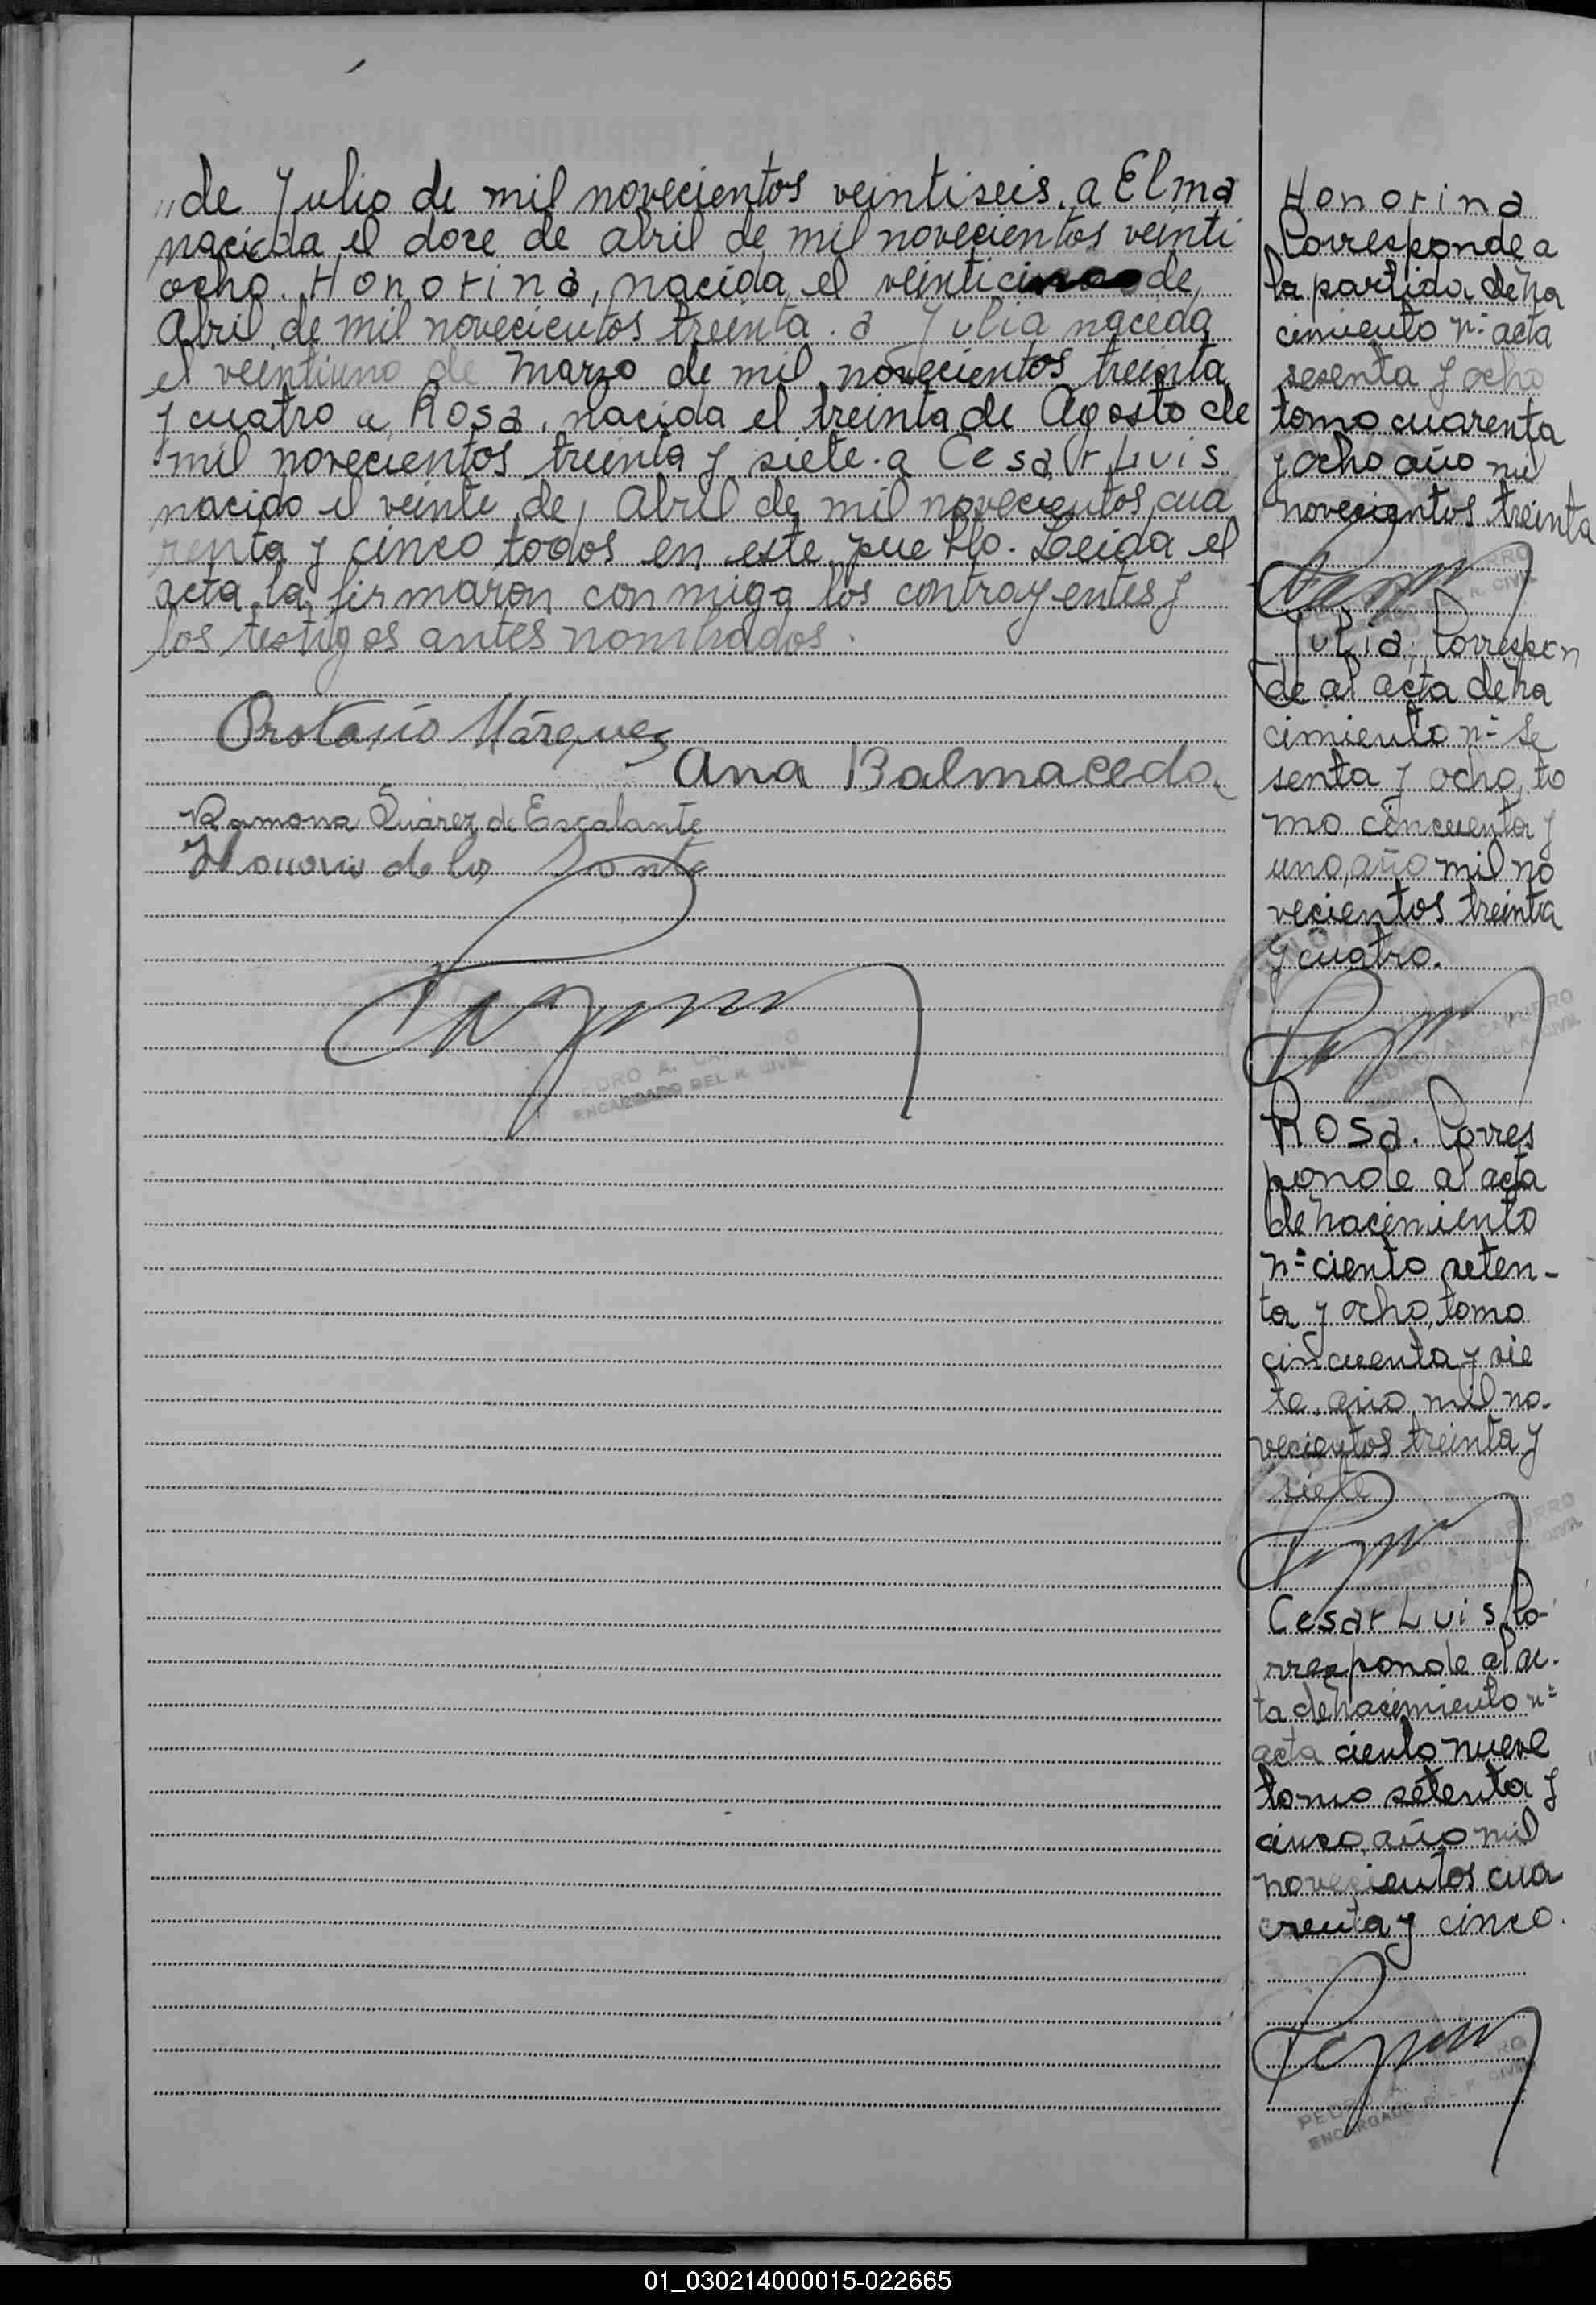 de Julio de mil novecientos veintiseis. a Elma
nacida el doce de abril de mil novecientos veinti
ocho. Honorina, nacida el veinticinco de
Abril de mil novecientos treinta. a Julia nacida
el veintiuno de Marzo de mil novecientos treinta
y cuatro a Rosa, nacida el treinta de Agosto de
mil novecientos treinta y siete. a Cesar Luis
nacido el veinte de Abril de mil novecientos cua
renta y cinco todos en este pueblo. Leida el
acta la firmaron conmigo los contrayentes y
los testigos antes nombrados.
Márquez
Ana Balmaceda
Ramona Suárez de Escalante
de la
PEDRO A. CAPURRO
ENCARGADO DEL R. CIVIL
Honorina
Corresponde a
la partida de na
cimiento nº acta
sesenta y ocho
tomo cuarenta
y ocho año mil
novecientos treinta
Julia. Correspon
de al acta de na
cimiento nº se
senta y ocho, to
mo cincuenta y
uno, año mil no
vecientos treinta
y cuatro.
PEDRO A. CAPURRO
ENCARGADO DEL R. CIVIL
Rosa. Corres
ponde al acta
de nacimiento
nº ciento seten-
ta y ocho, tomo
cincuenta y sie
te, año mil no-
vecientos treinta y
siete
PEDRO A. CAPURRO
Cesar Luis Co-
rresponde al ac-
ta de nacimiento nº
acta ciento nueve
tomo setenta y
cinco, año mil
novecientos cua
renta y cinco.
PEDRO A.
ENCARGADO DEL R. CIVIL
01_030214000015-022665